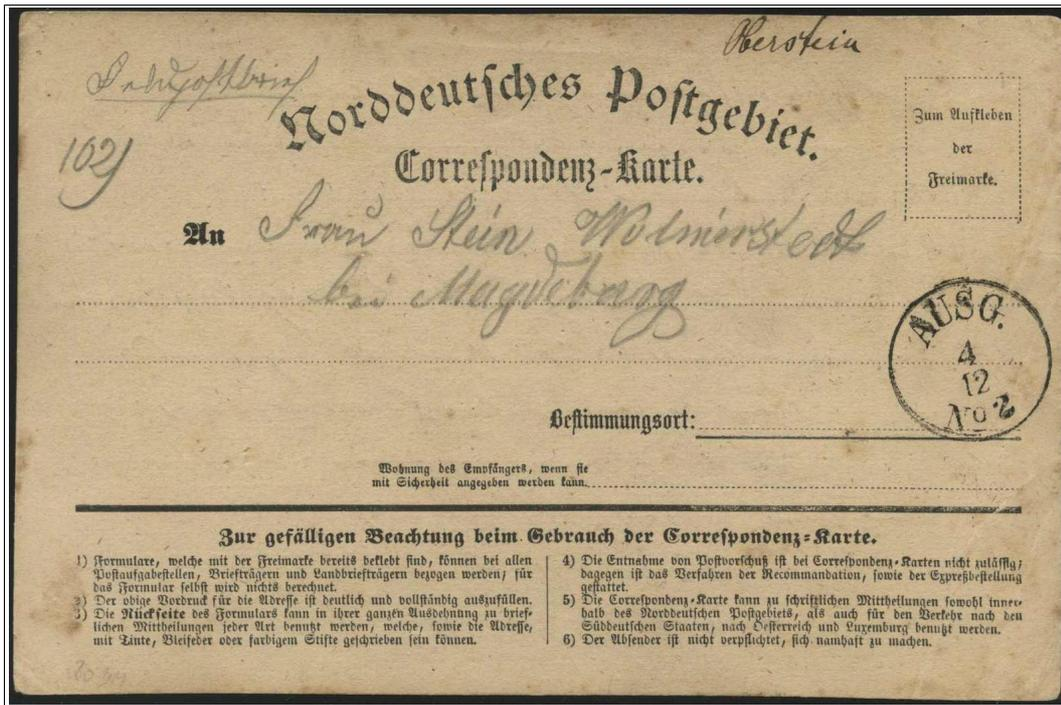 Oberstein
Feldpostbrief
Norddeutsches Postgebiet.
Correspondenz-Karte.
Zum Aufkleben
der
Freimarke.
102)
An Frau Stein Wolmirstedt
bei Magdeburg
AUSG.
4
12
No 2
Bestimmungsort:
Wohnung des Empfängers, wenn sie
mit Sicherheit angegeben werden kann.
Zur gefälligen Beachtung beim Gebrauch der Correspondenz-Karte.
1) Formulare, welche mit der Freimarke bereits beklebt sind, können bei allen
Postaufgabestellen, Briefträgern und Landbriefträgern bezogen werden; für
das Formular selbst wird nichts berechnet.
2) Der obige Vordruck für die Adresse ist deutlich und vollständig auszufüllen.
3) Die Rückseite des Formulars kann in ihrer ganzen Ausdehnung zu brief-
lichen Mittheilungen jeder Art benutzt werden, welche, sowie die Adresse,
mit Tinte, Bleifeder oder farbigem Stifte geschrieben sein können.
4) Die Entnahme von Postvorschuß ist bei Correspondenz-Karten nicht zulässig;
dagegen ist das Verfahren der Recommandation, sowie der Expreßbestellung
gestattet.
5) Die Correspondenz-Karte kann zu schriftlichen Mittheilungen sowohl inner-
halb des Norddeutschen Postgebiets, als auch für den Verkehr nach den
Süddeutschen Staaten, nach Oesterreich und Luxemburg benutzt werden.
6) Der Absender ist nicht verpflichtet, sich namhaft zu machen.